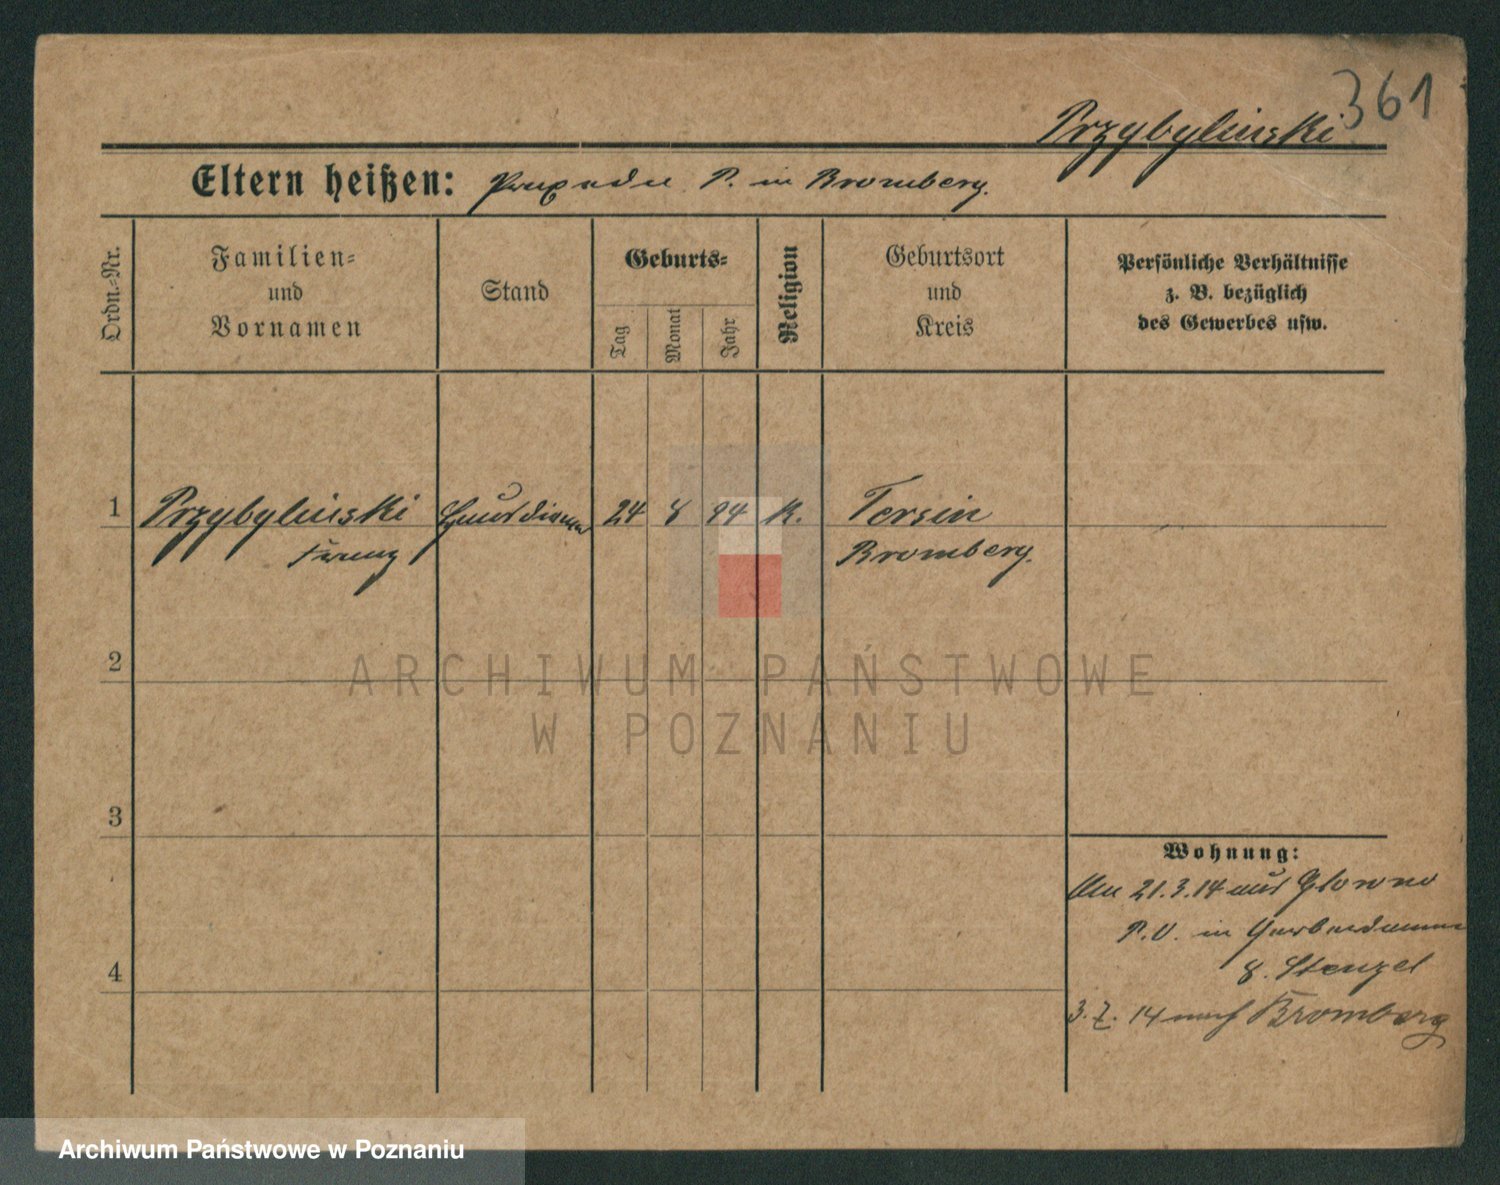 361
Przybylinski
Eltern heißen: P. in Bromberg.
Ordn.-Nr.
Familien-
und
Vornamen
Stand
Geburts-
Tag
Monat
Jahr
Religion
Geburtsort
und
Kreis
Persönliche Verhältnisse
z. B. bezüglich
des Gewerbes usw.
1 Przybylinski Hausdiener 24 8 94 K. Tersin
Franz Bromberg.
2
3
4
Wohnung:
Am 21.3.14 aus Glowno
P.O. in Gerberdamm
8. Stenzel
3. 7. 14 nach Bromberg
ARCHIWUM PAŃSTWOWE
W POZNANIU
Archiwum Państwowe w Poznaniu